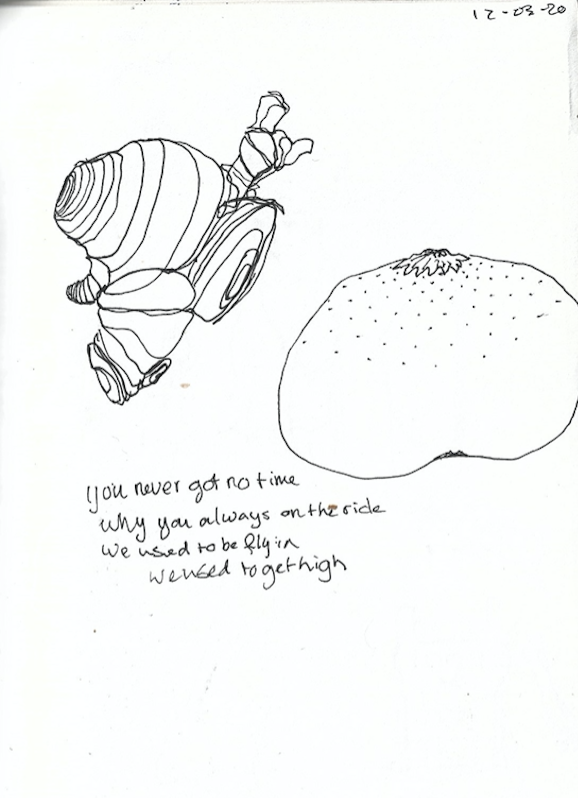 12-03-20
you never got no time
why you always on the ride
we used to be flyin
we used to get high